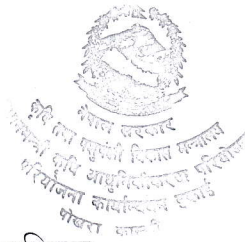 नेपाल सरकार
कृषि तथा पशुपंछी विकास मन्त्रालय
कृषि आधुनिकीकरण परियोजना
परियोजना कार्यान्वयन इकाई
पोखरा